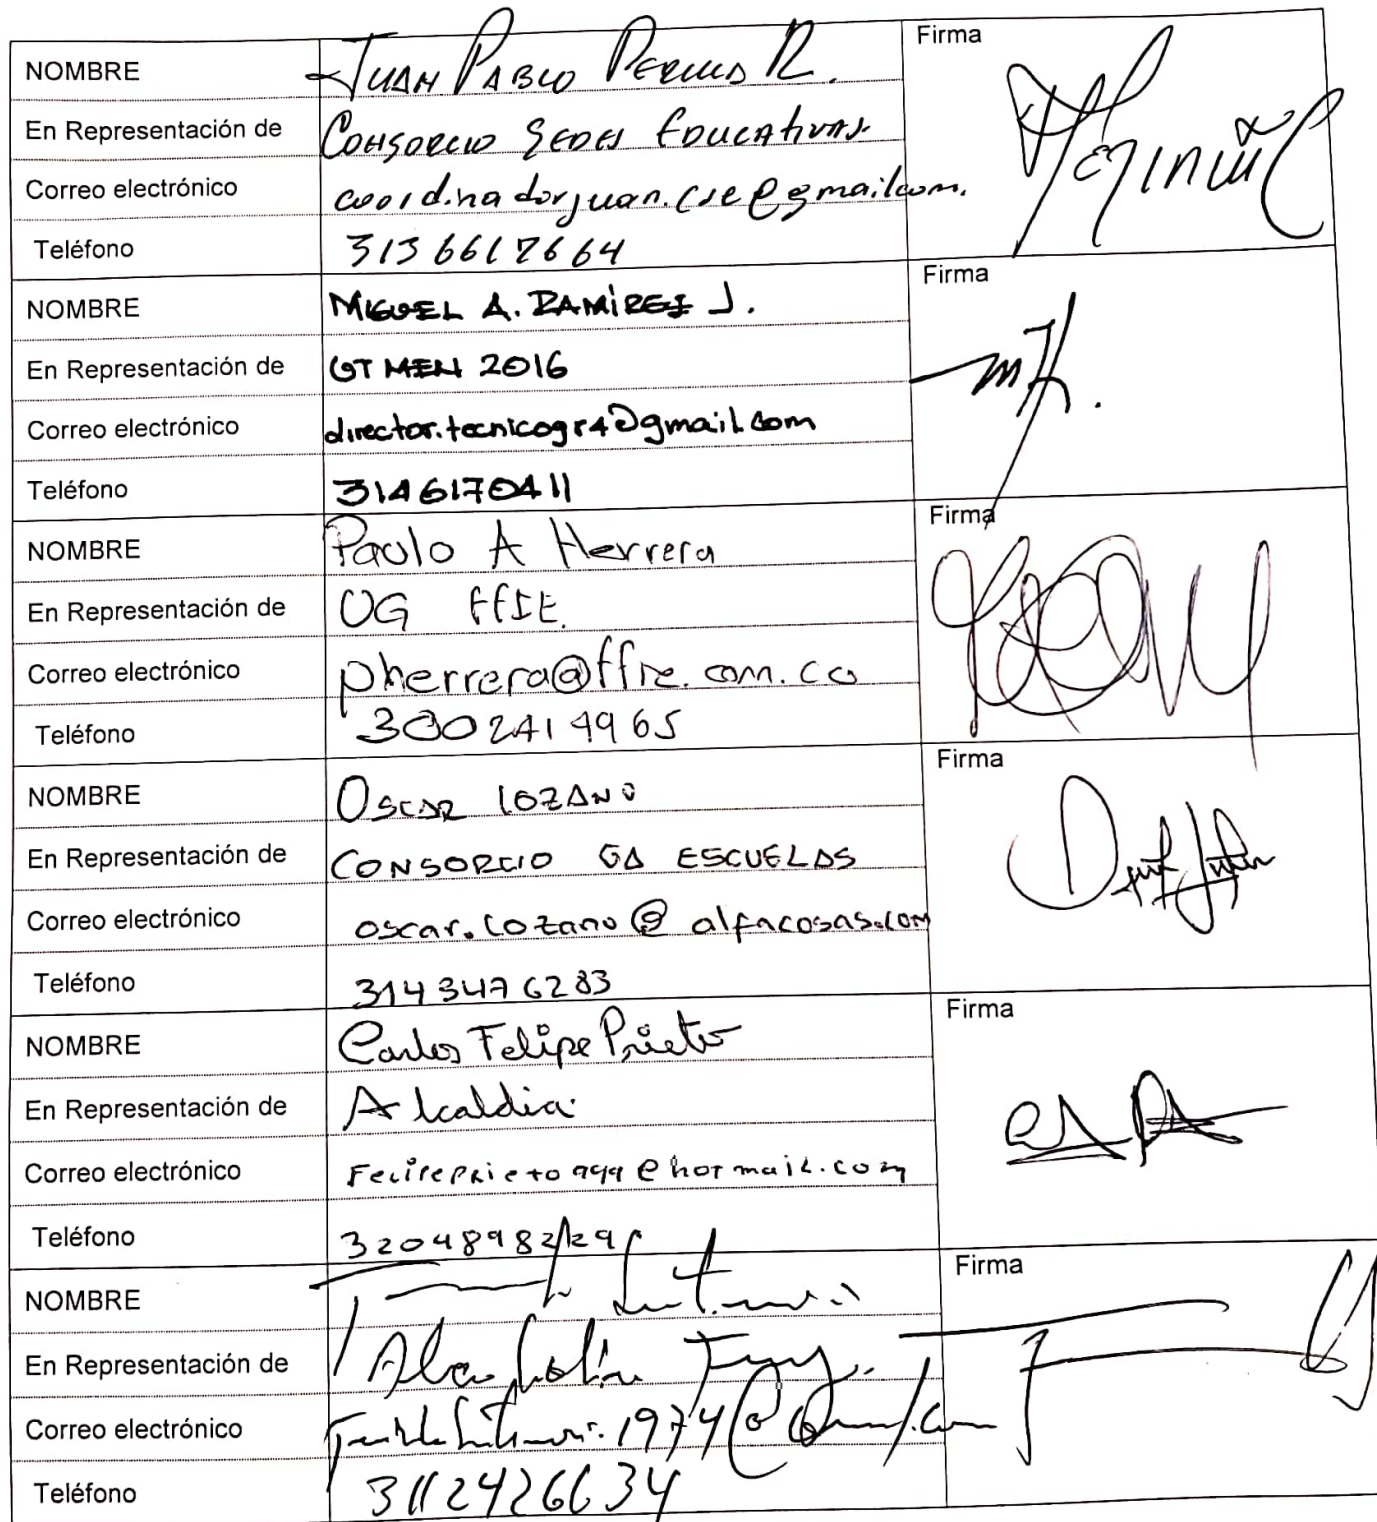 NOMBRE JUAN PABLO R. Firma
En Representación de CONSORCIO SEDES EDUCATIVAS.
Correo electrónico coordinadorjuan.cse@gmail.com.
Teléfono 3136617664
NOMBRE MIGUEL A. RAMÍREZ J. Firma
En Representación de GT MEN 2016
Correo electrónico director.tecnicogr4@gmail.com
Teléfono 3146170411
NOMBRE Paulo A Herrera Firma
En Representación de UG FFIE.
Correo electrónico pherrera@ffie.com.co
Teléfono 3002414965
NOMBRE OSCAR LOZANO Firma
En Representación de CONSORCIO GA ESCUELAS
Correo electrónico oscar.lozano@alfacosas.com
Teléfono 3143476283
NOMBRE Carlos Felipe Prieto Firma
En Representación de Alcaldia.
Correo electrónico Felipeprieto999@hotmail.com
Teléfono 3204898229
NOMBRE Firma
En Representación de
Correo electrónico
Teléfono 3112426634